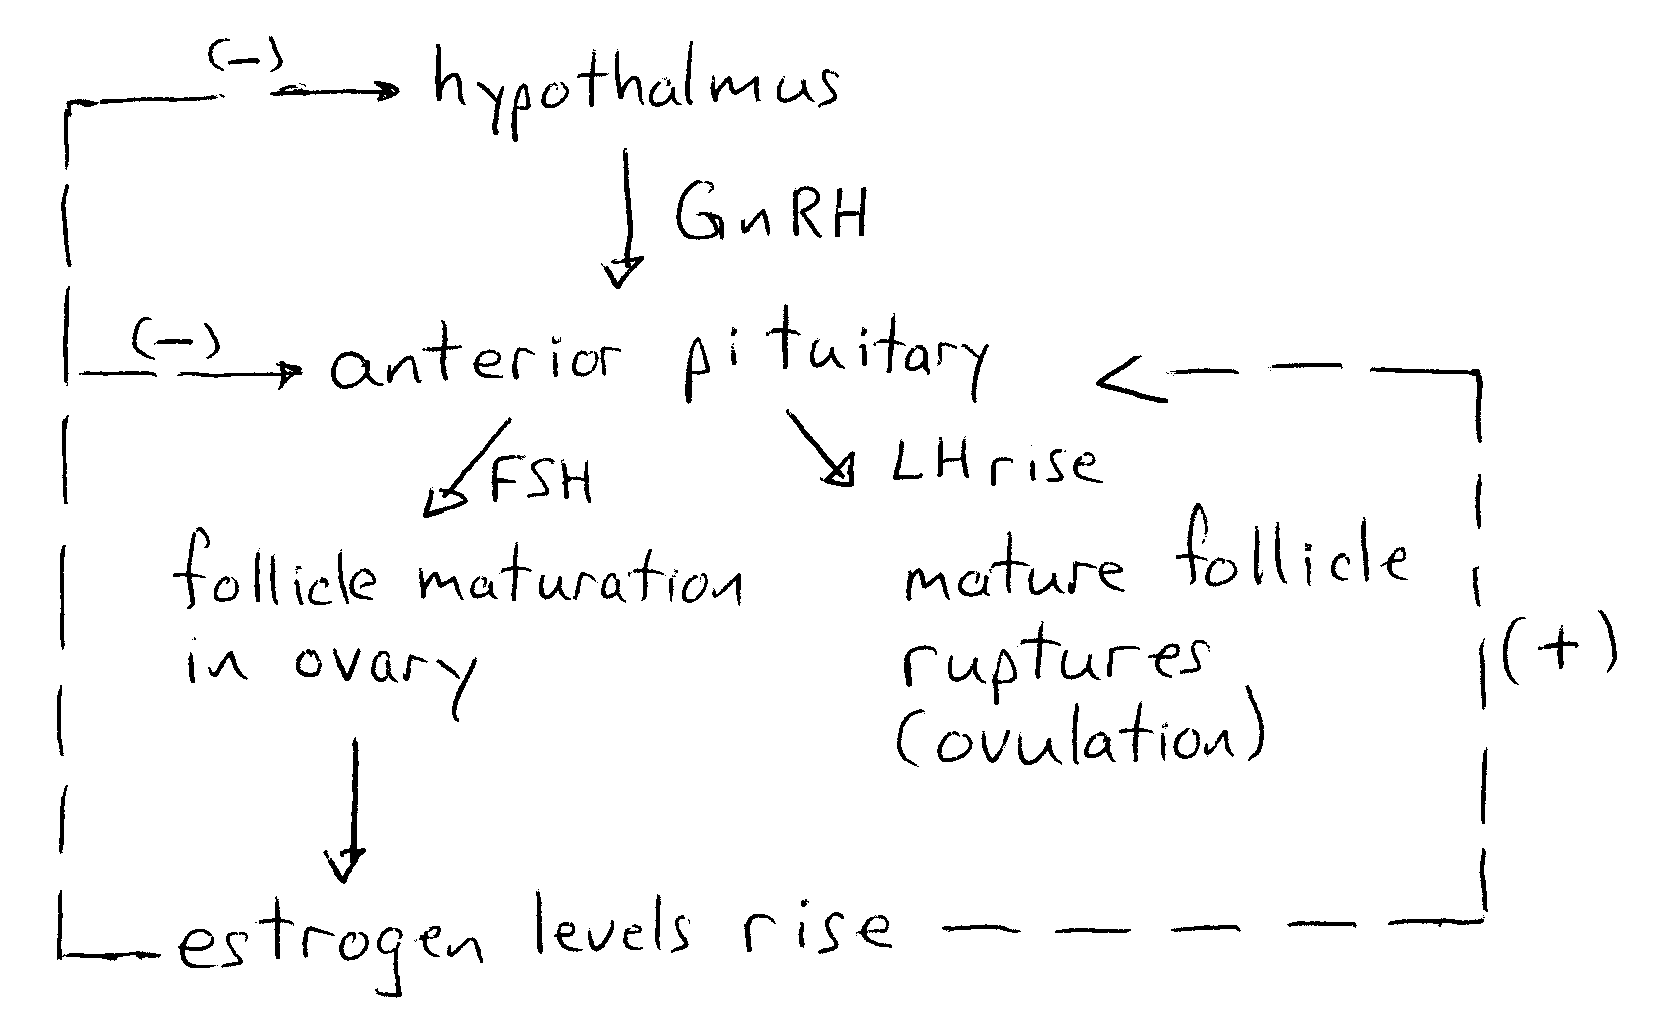 (-)
hypothalmus
GnRH
(-)
anterior pituitary
FSH
LH rise
follicle maturation
in ovary
mature follicle
ruptures
(ovulation)
(+)
estrogen levels rise